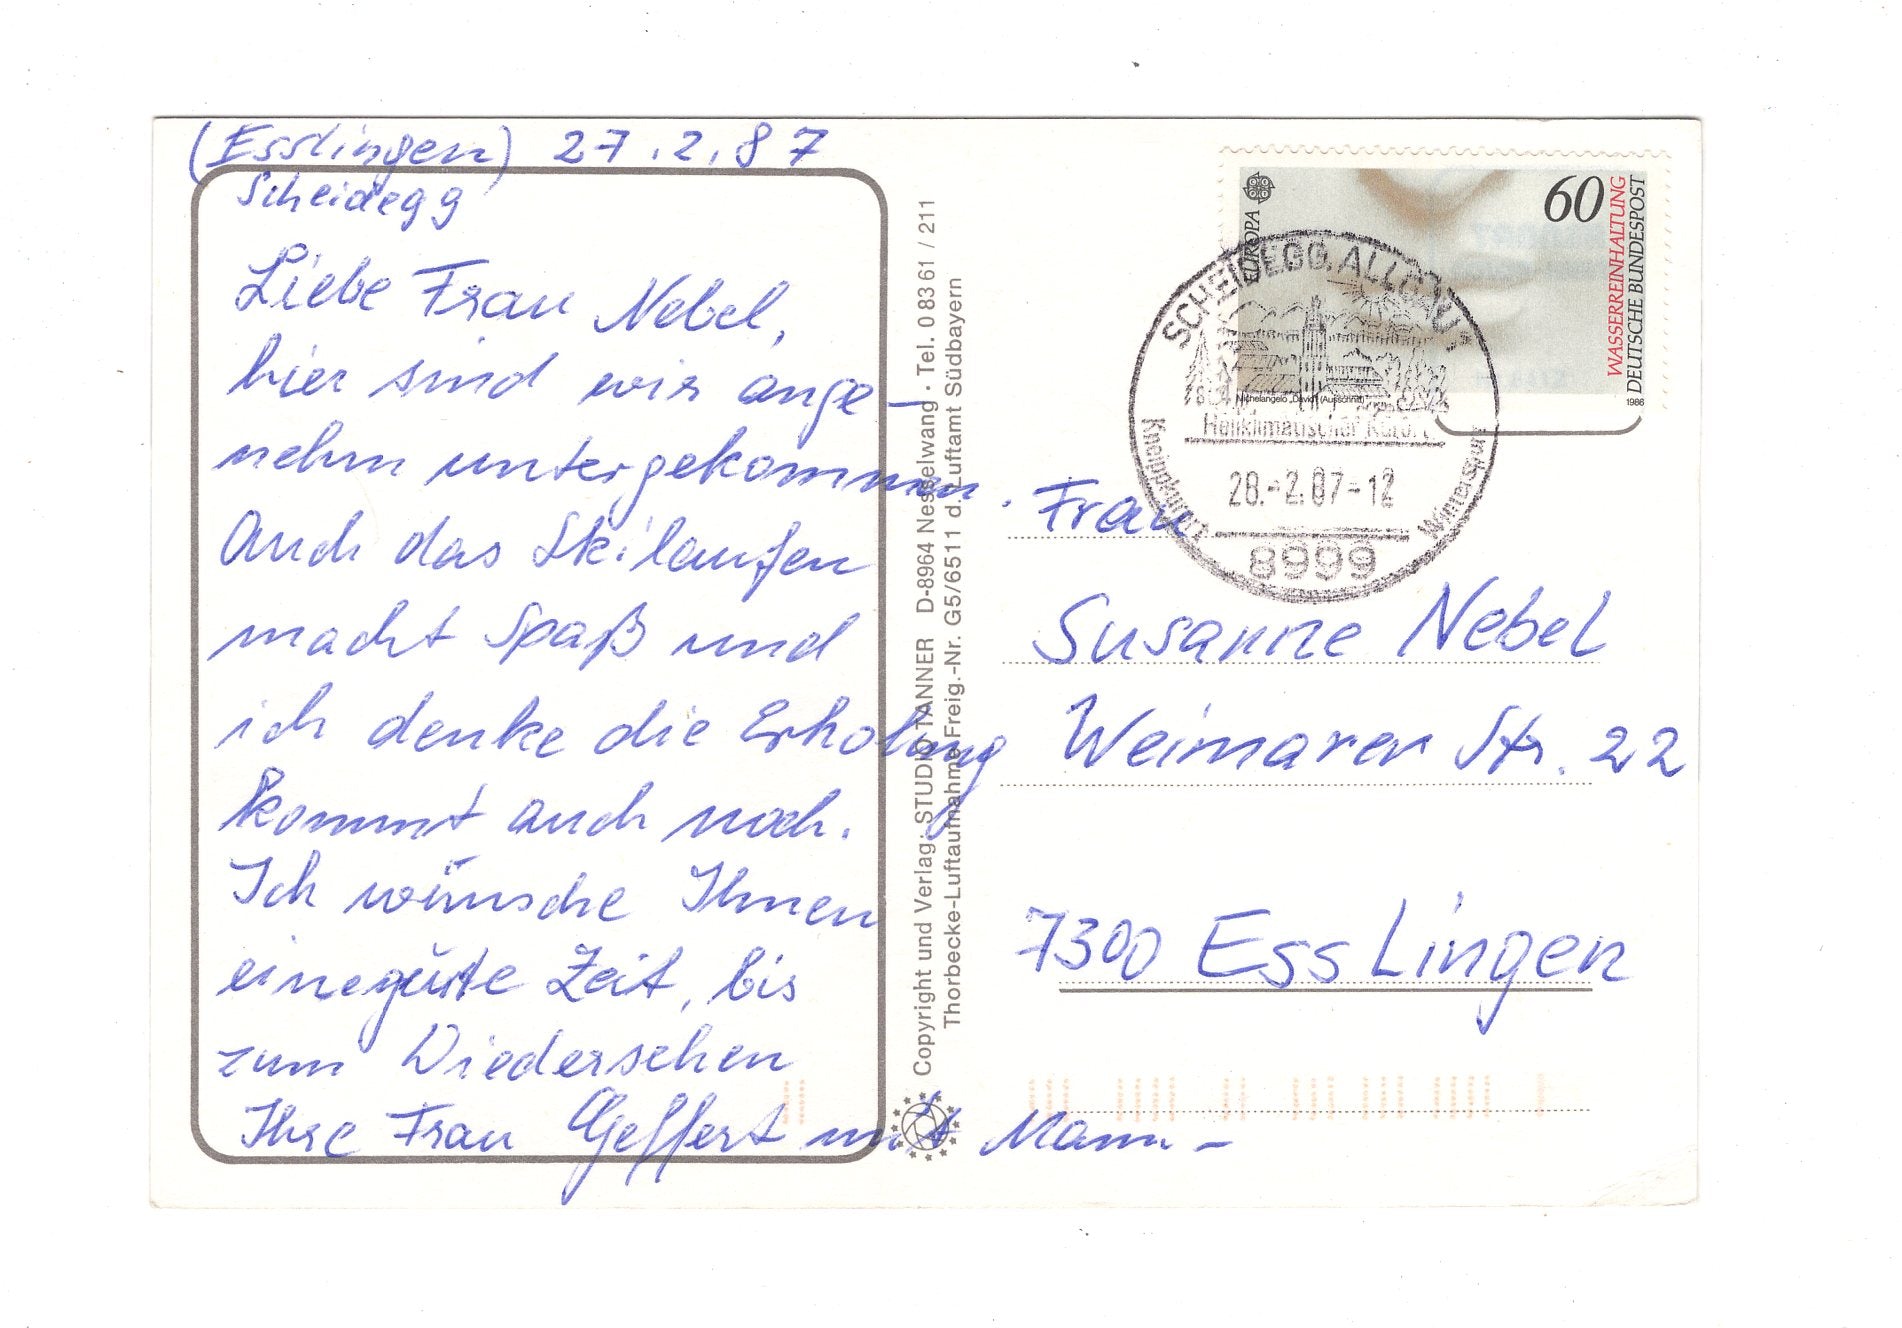 (Esslingen) 27.2.87
Scheidegg
Liebe Frau Nebel,
hier sind wir ange-
nehm untergekommen.
Auch das Skilaufen
macht Spaß und
ich denke die Erholung
kommt auch noch.
Ich wünsche Ihnen
eine gute Zeit, bis
zum Wiedersehen
Ihre Frau Geffert mit Mann -
Copyright und Verlag: STUDIO TANNER D-8964 Nesselwang · Tel. 0 83 61 / 211
Thorbecke-Luftaumahme Freig.-Nr. G5/6511 d. Luftamt Südbayern
EUROPA
60
WASSERREINHALTUNG
DEUTSCHE BUNDESPOST
Michelangelo „David" (Ausschnitt)
1986
SCHEIDEGG, ALLGÄU
Heilklimatischer Kurort
Kneippkurort
Wintersport
28.-2.87-12
8999
Frau
Susanne Nebel
Weimarer Str. 22
7300 Esslingen